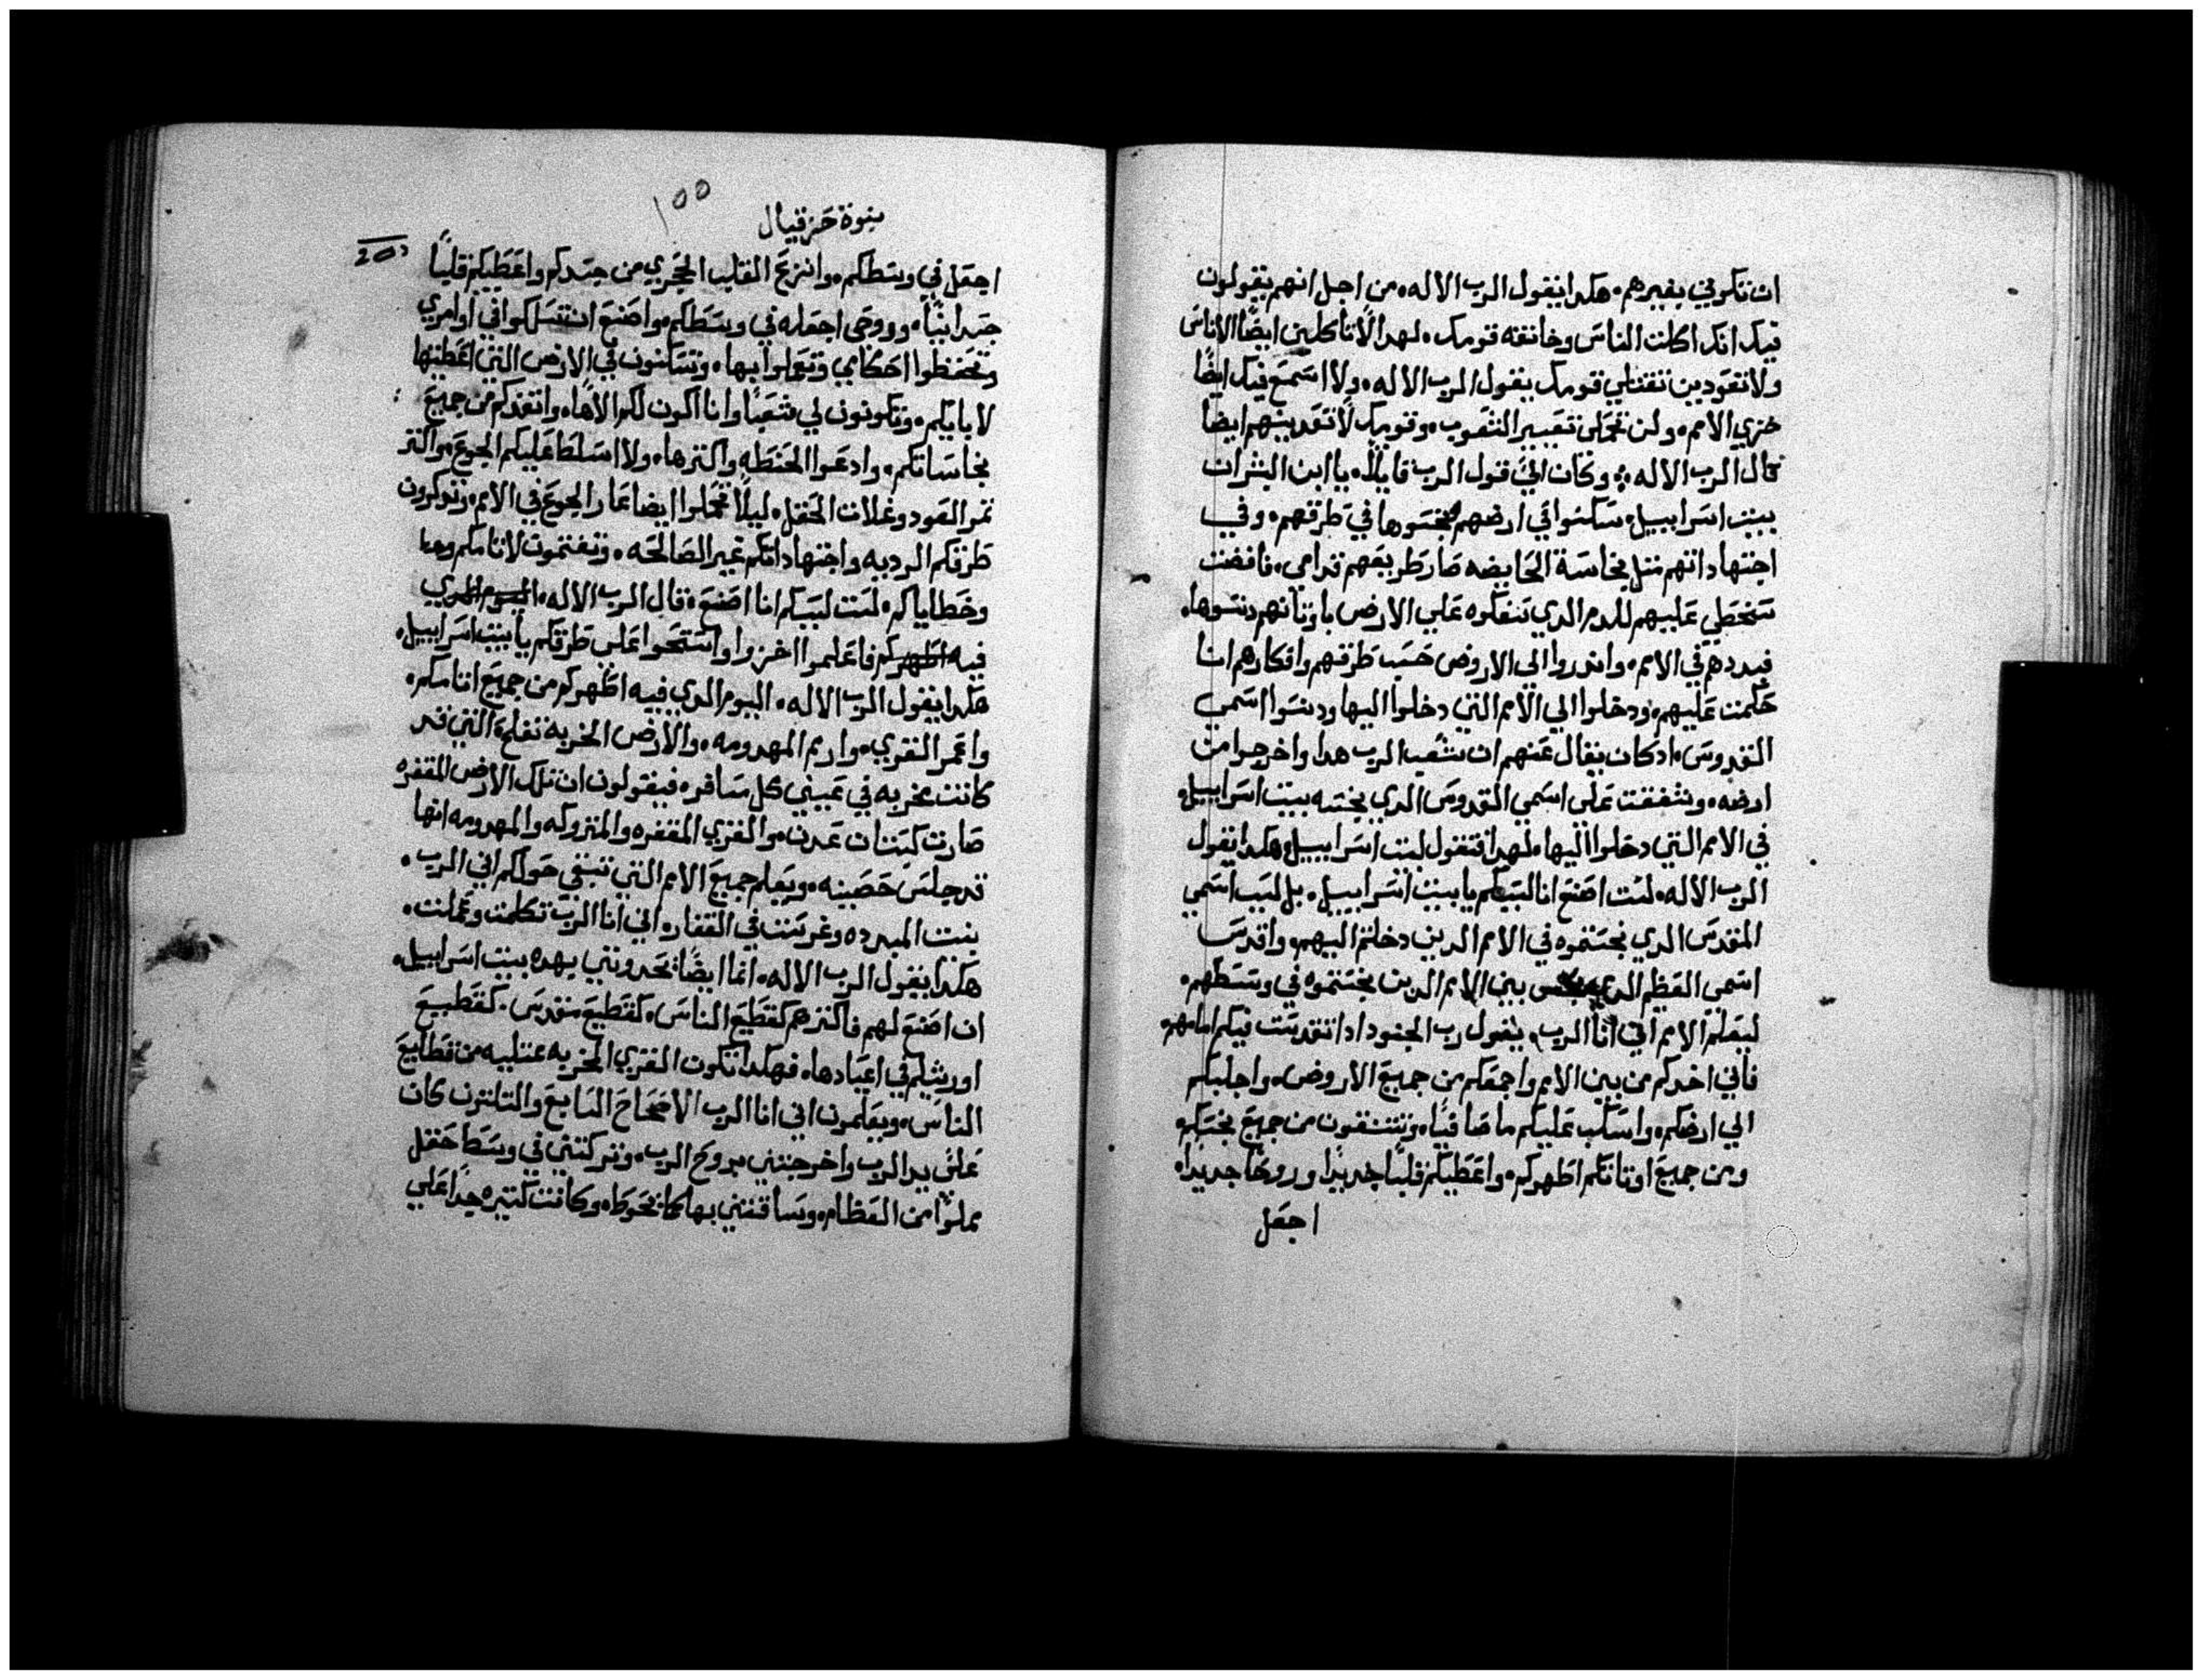 ان تكوني بغيرهم۰ هكدا يقول الرب الاله۰ من اجل انهم يقولون
فيك انك اكلت الناس وخانقته قومك۰ لهدا لا تاكلين ايضًا الاناس
ولا تعودين تقتلي قومك يقول الرب الاله۰ ولا اسمع فيك ايضًا
خزي الامم۰ ولن تحملي تعيير الشعوب۰ وقومك لا تعدينهم ايضا
قال الرب الاله۰ وكان اليّ قول الرب قايلًا۰ يا ابن البشر ان
بيت اسراييل۰ سكنوا في ارضهم نجسوها في طرقهم۰ وفي
اجتهاداتهم مثل نجاسة الحايضه صار طريقهم قدامي۰ فافضت
سخطي عليهم للدم الدي سفكوه علي الارض باوتانهم دنسوها۰
فبددهم في الامم۰ واندروا الي الاروض حسب طرقهم وافكارهم انا
حكمت عليهم۰ ودخلوا الي الامم التي دخلوا اليها ودنسوا اسمي
القدوس۰ اد كان يقال عنهم ان شعب الرب هدا واخرجوا من
ارضه۰ وشفقت علي اسمي القدوس الدي نجسه بيت اسراييل۰
في الامم التي دخلوا اليها۰ لهدا فتقول لبيت اسراييل۰ هكدا يقول
الرب الاله۰ لست اصنع انا لسببكم يا بيت اسراييل۰ بل لسبب اسمي
المقدس الدي نجستموه في الامم الدين دخلتم اليهم۰ واقدس
اسمي العظيم الدي بين الامم الدين نجستموه في وسطهم۰
ليعلم الامم اني انا الرب۰ يقول رب الجنود ادا تقدست فيكم امامهم۰
فاني اخدكم من بين الامم واجمعكم من جميع الاروض۰ واجلبكم
الي ارضكم۰ واسكب عليكم ما صافيًا۰ وتتنقون من جميع نجسكم۰
ومن جميع اوتانكم اطهركم۰ واعطيكم قلبًا جديدًا وروحًا جديدا۰
اجعل
١٥٥
نبوة حزقيال
اجعل في وسطكم۰ وانزع القلب الحجري من جسدكم واعطيكم قلبًا
جسدانيًا۰ وروحي اجعله في وسطكم۰ واصنع ان تسلكوا في اوامري
وتحفظوا احكامي وتعملوا بها۰ وتسكنون في الارض التي اعطيتها
لابايكم۰ وتكونون لي شعبًا وانا اكون لكم الاهًا۰ وانقدكم من جميع
نجاساتكم۰ وادعوا الحنطه واكترها۰ ولا اسلط عليكم الجوع۰ واكتر
تمر العود وغلات الحقل۰ ليلًا تحملوا ايضا عار الجوع في الامم۰ وتدكرون
طرقكم الرديه واجتهاداتكم غير الصالحه۰ وتغتمون لاتامكم
وخطاياكم۰ لست لسببكم انا اصنع۰ قال الرب الاله۰ اليوم الدي
فيه اطهركم فاعلموا اخزوا واستحوا علي طرقكم يا بيت اسراييل۰
هكدا يقول الرب الاله۰ اليوم الدي فيه اطهركم من جميع اتامكم۰
واعمر القري۰ وارمم المهدومه۰ والارض الخربه تفلح۰ التي قد
كانت مخربه في عيني كل مسافر۰ فيقولون ان تلك الارض المقفره
صارت كبستان عدن۰ والقري المقفره والمتروكه والمهدومه انها
قد جلس حصينه۰ ويعلم جميع الامم التي تبقي حولكم اني الرب۰
بنيت المبدده وغرست في القفار۰ اني انا الرب تكلمت وعملت۰
هكدا يقول الرب الاله۰ انما ايضًا تجدونني بهده بيت اسراييل۰
ان اصنع لهم فاكترهم كقطيع الناس۰ كقطيع مقدس۰ كقطيع
اورشليم في اعيادها۰ فهكدا تكون القري الخربه ممتليه من قطايع
الناس۰ ويعلمون اني انا الرب الاصحاح السابع والتلتون كان
علي يد الرب واخرجتني بروح الرب۰ وتركتني في وسط حقل
مملوًا من العظام۰ وساقتني بها كما نحوطه۰ وكانت كتيره جدًا علي